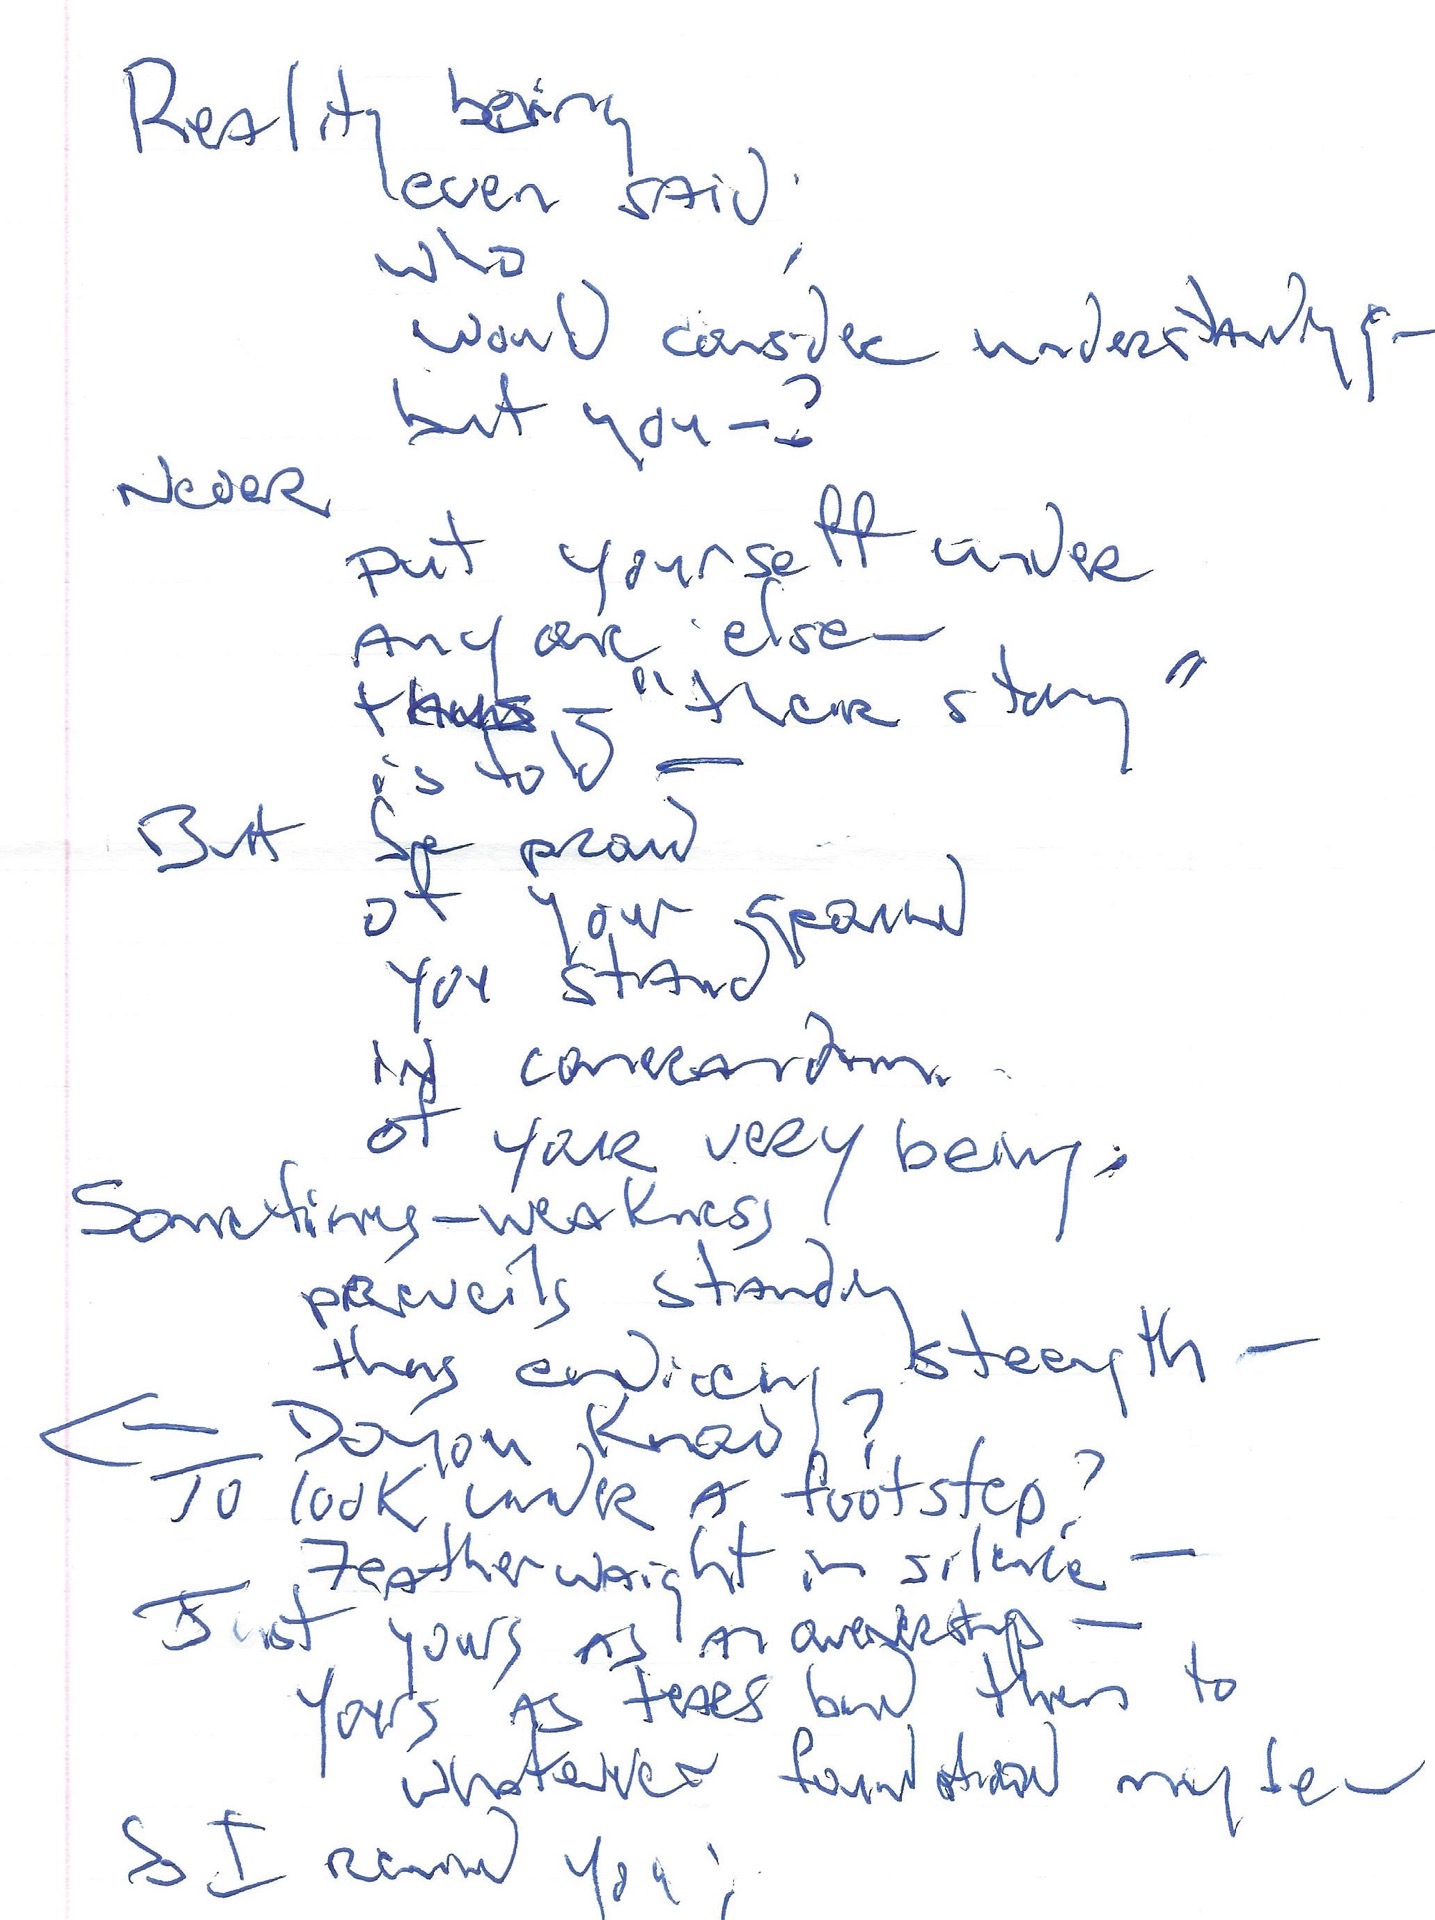 Reality being
even said;
who
would consider understanding -
but you - ?
Never
put yourself under
anyone else -
- "their story"
is told -
But be proud
of your ground
you stand
in
of your very being;
Sometimes - weakness
prevails standing
thus strength -
Do you know?
To look under a footstep?
Featherwaight in silence -
Just yours as an ownership -
Yours as trees bend them to
whatever foundation may be
So I remind you;